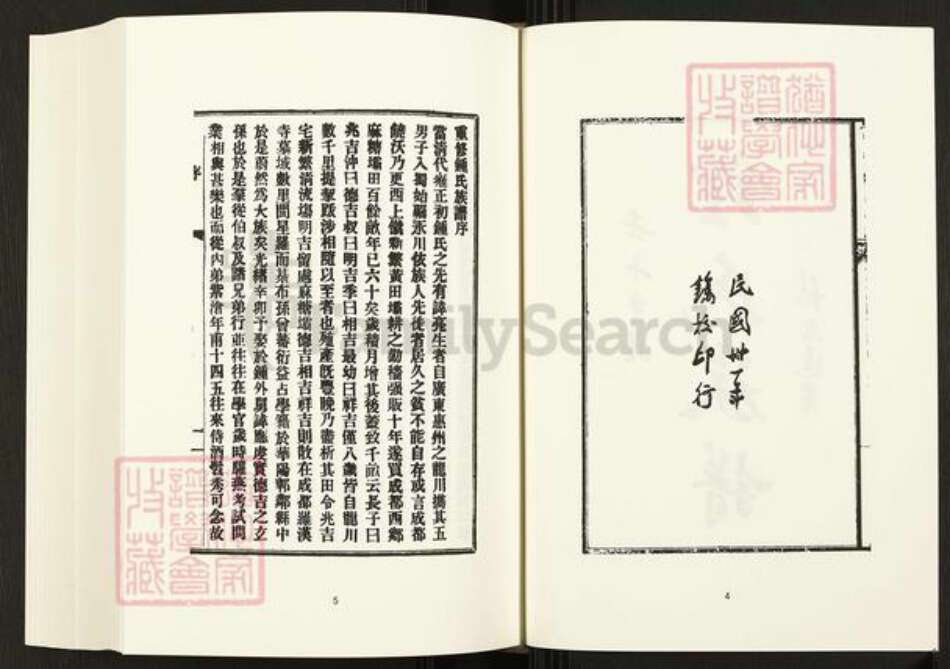 民國卅一年
鏤板印行
4
重修鍾氏族譜序
當清代雍正初鍾氏之先有諱亮生者自廣東惠州之龍川攜其五
男子入蜀始寓永川依族人先徙者居久之貧不能自存或言成都
饒沃乃更西上僦新繁黃田壩耕之勤穡强販十年遂買成都西鄉
麻糖壩田百餘畝年已六十矣歲積月增其後蓋致千畝云長子曰
兆吉沖曰德吉叔曰明吉季曰相吉最幼曰祥吉僅八歲皆自龍川
數千里提挈跋涉相隨以至者也殖產旣豐晚乃盡析其田令兆吉
宅新繁清流塲明吉留處麻糖壩德吉相吉祥吉則散在成都羅漢
寺墓域數里間星羅而棊布孫曾蕃衍益占學籍於華陽郫鄰縣中
於是蔚然爲大族矣光緒辛卯予娶於鍾外舅諱應虞實德吉之玄
孫也於是羣從伯叔及諸兄弟行並往往在學官歲時讌燕考試間
業相與甚樂也而從內弟紫滄年甫十四五往來侍酒髫秀可念故
序
5
FamilySearch
譜學會
收藏